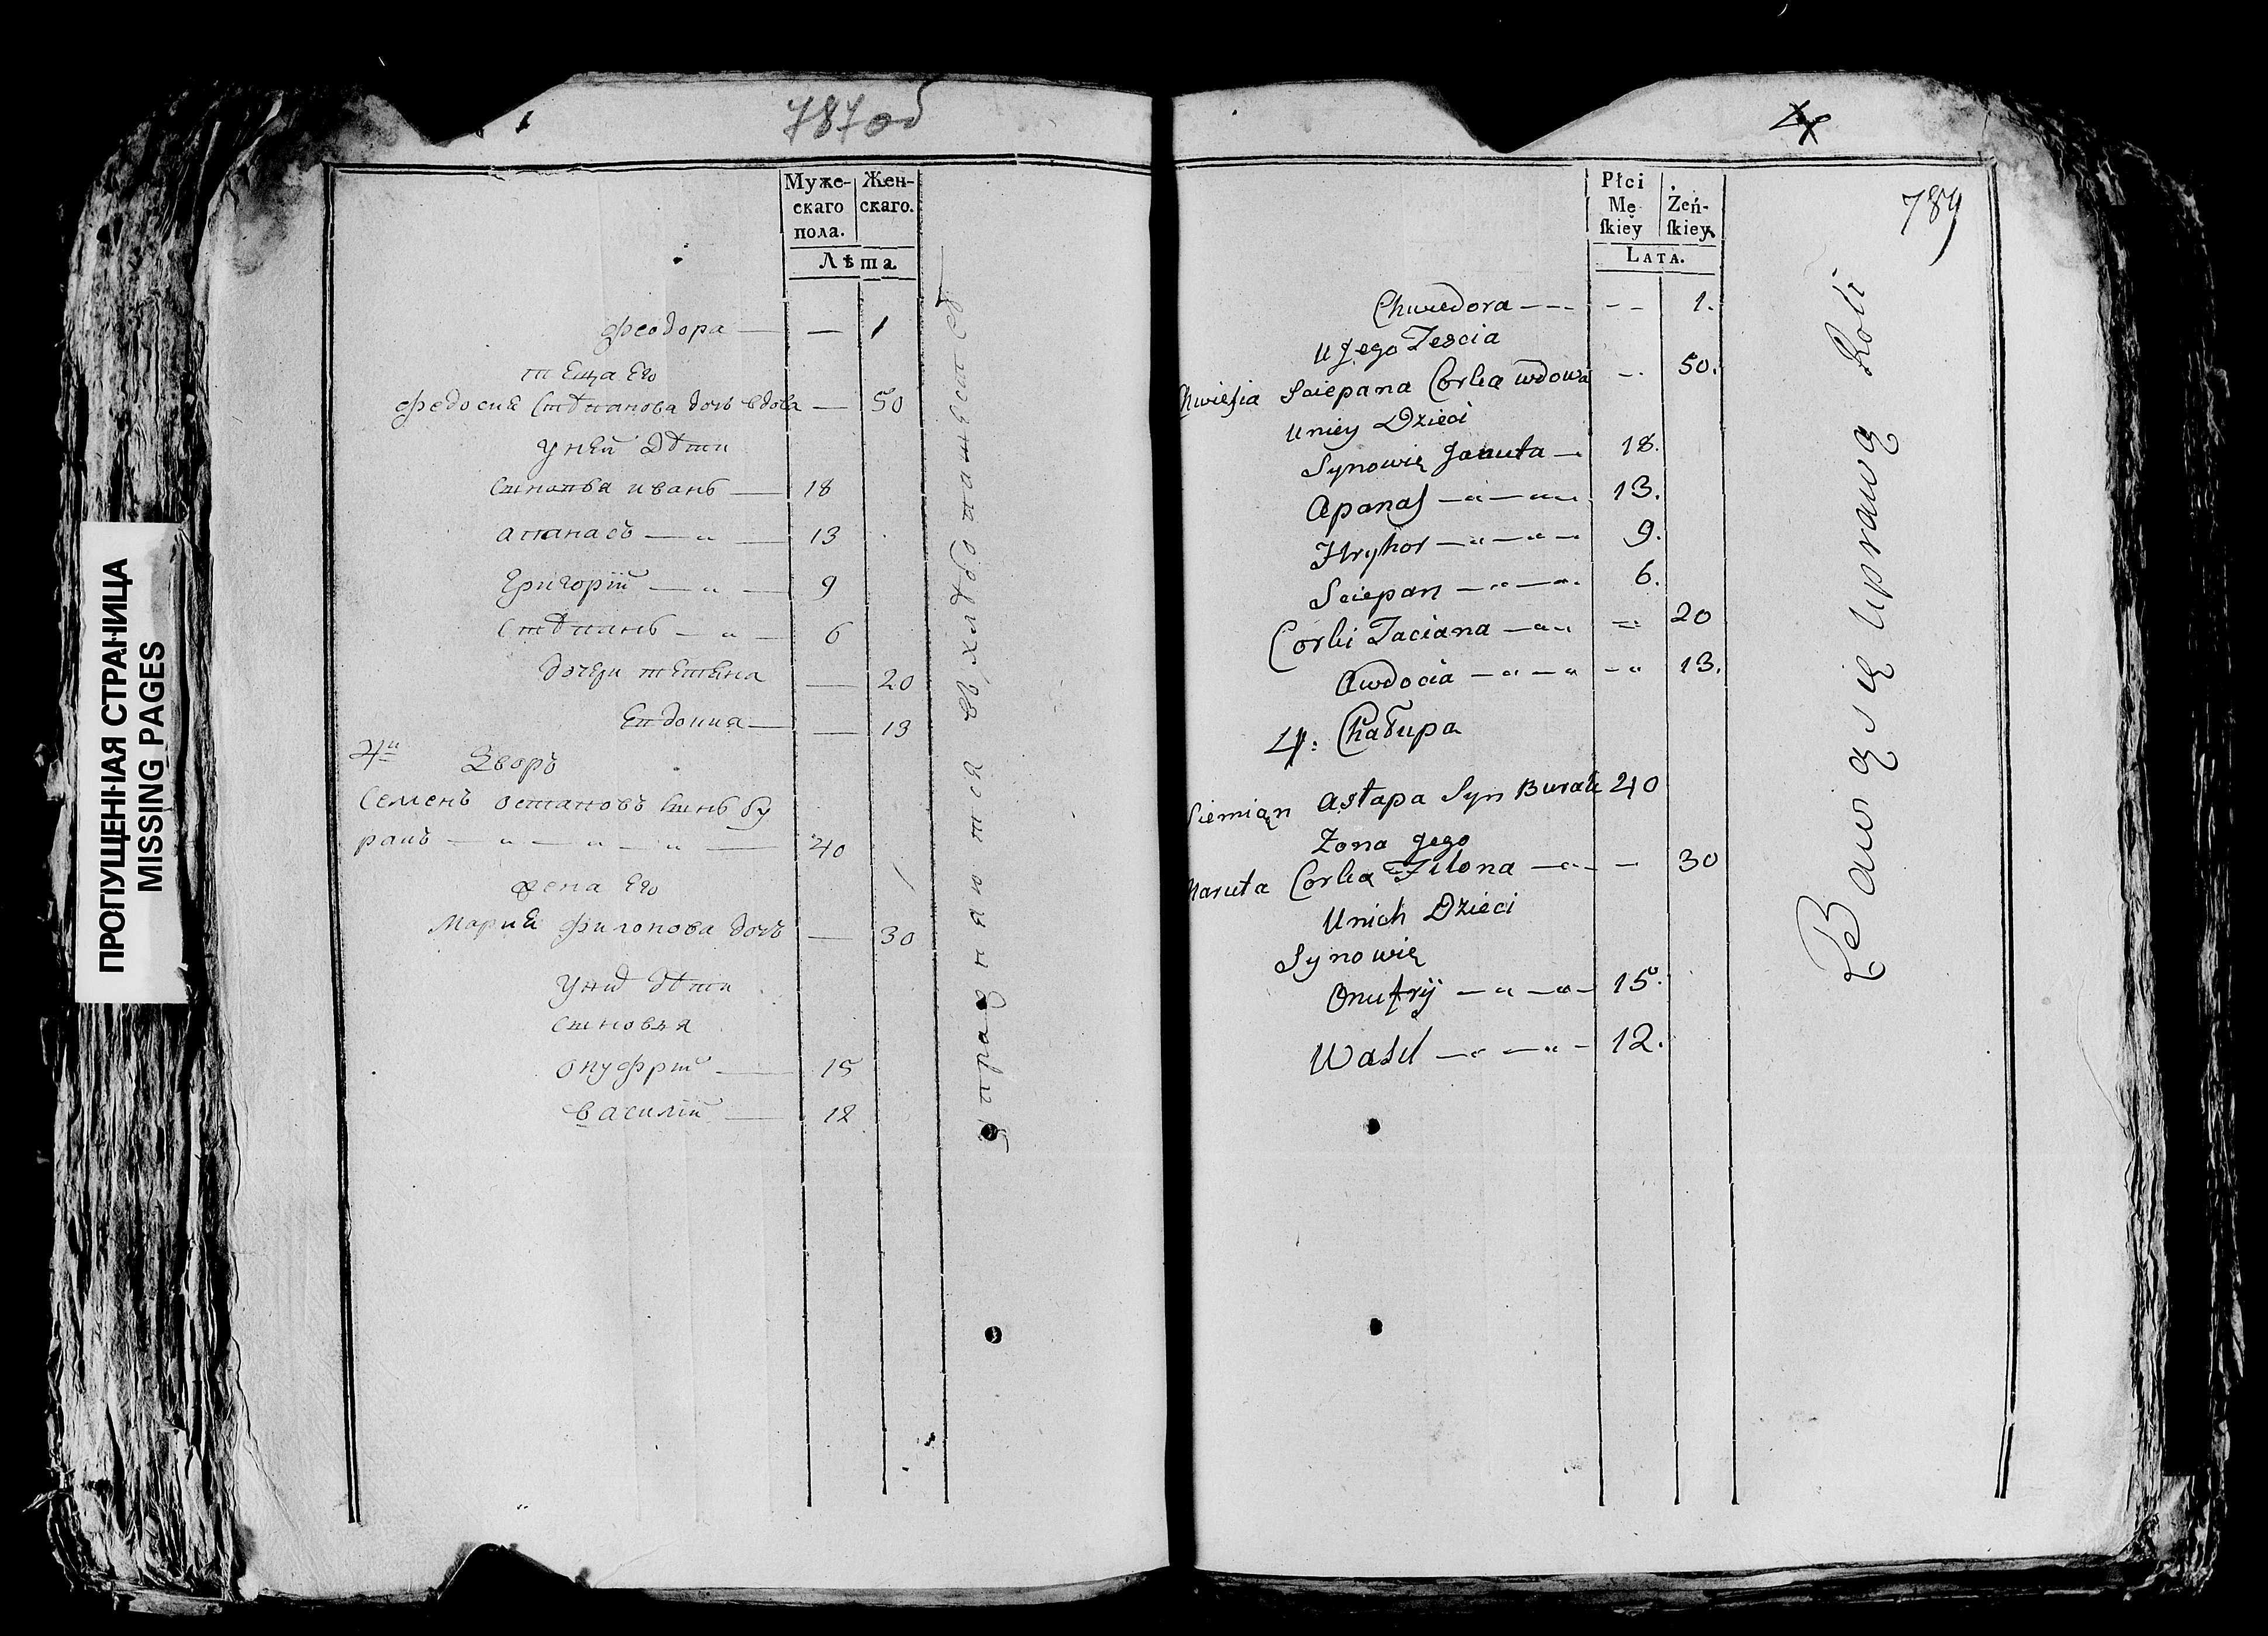 ПРОПУЩЕННАЯ СТРАНИЦА
MISSING PAGES
787об
Муже-
скаго
пола.
Жен-
скаго.
Лѣта.
Феодора — — 1
теща Его
Федосия Стѣпанова дочь вдова — 50
у ней дѣти
сыновья иванъ — 18
апанасъ — „ — 13
Григорiй — „ — 9
Стѣпанъ — „ — 6
дочери тетяна — 20
Евдокия — — 13
4й Дворъ
Семенъ остаповъ сынъ бу
ракъ — „ — „ — „ — 40
жена Его
Мария филонова дочь — 30
у нихъ дѣти
сыновья
онуфрiй — 15
василiй — 12
упражняются въ хлѣбопашествѣ
4
789
Płci
Mę
ſkiey
Żeń-
ſkiey.
LATA.
Chwedora — — — — — 1.
U Jego Tescia
Chwiesia Sciepana Corka wdowa — 50.
Uniey Dzieci
Synowię Januta — 18.
Apanas — „ — „ — 13.
Hryhor — „ — „ — 9.
Sciepan — „ — „ 6.
Corki Taciana — „ = 20
Awdocia — „ — „ — „ 13.
4. Chałupa
Siemiąn Astapa Syn Burak 40
Żona jego
Maruta Corka Filona — „ — — 30
Unich Dzieci
Synowię
Onufrÿ — „ — „ — 15.
Wasil — „ — „ — 12.
Bawią się Uprawą Roli